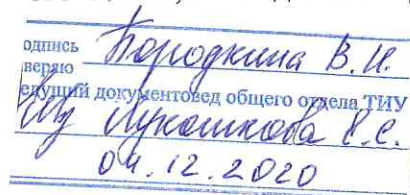 одпись Бородкина В. И.
веряю
едущий документовед общего отдела ТИУ
Лукошкова Е.С.
04.12.2020